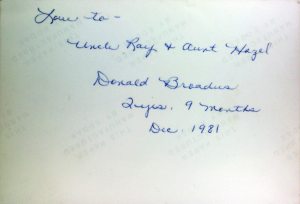 Love to -
Uncle Ray & Aunt Hazel
Donald Broadus
2 yrs. 9 months
Dec. 1981